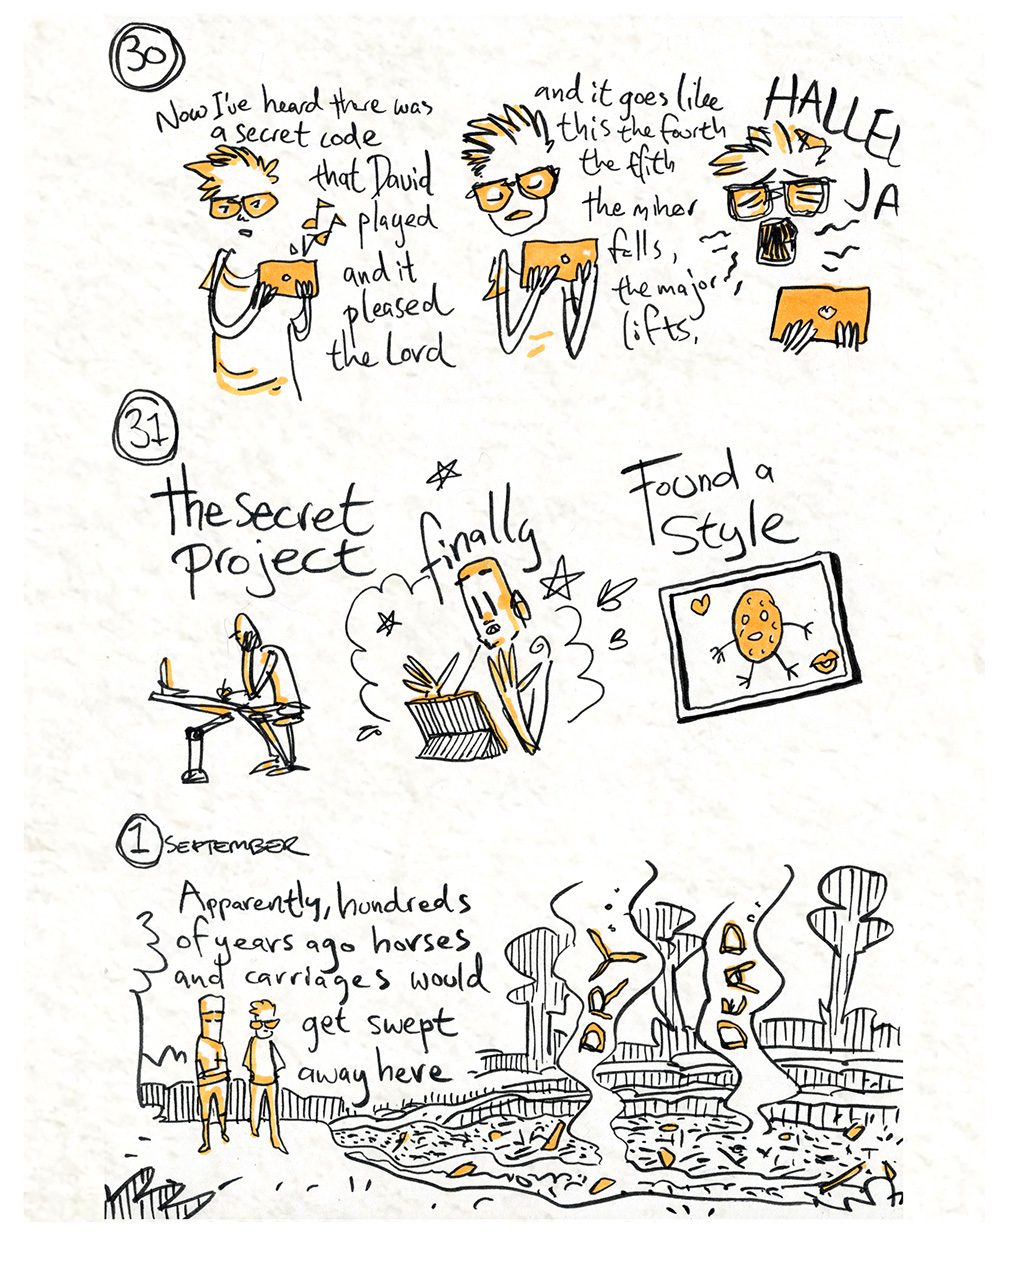 30
Now I've heard there was
a secret code
that David
played
and it
pleased
the Lord
and it goes like
this the fourth
the fifth
the minor
falls,
the major
lifts.
HALLEL
JA
31
The secret
project
finally
Found a
Style
1 SEPTEMBER
Apparently, hundreds
of years ago horses
and carriages would
get swept
away here
DRY
DEAD